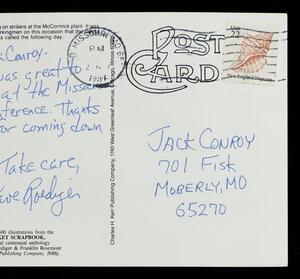 ng on strikers at the McCormick plant. It was
orkingmen on this occasion that the
s called the following day.
k Conroy-
was great to
at the Missou
ference. Thanks
for coming down
Take care,
ave Roediger
500 illustrations from the
KET SCRAPBOOK,
al centennial anthology
ediger & Franklin Rosemont
Publishing Company, 1986).
Charles H. Kerr Publishing Company, 1740 West Greenleaf Avenue, Chicago, Illinois 60626
MISSOURI
PM
POST
CARD
USA
22
New England Neptune
JACK CONROY
701 FISK
MOBERLY, MO
65270